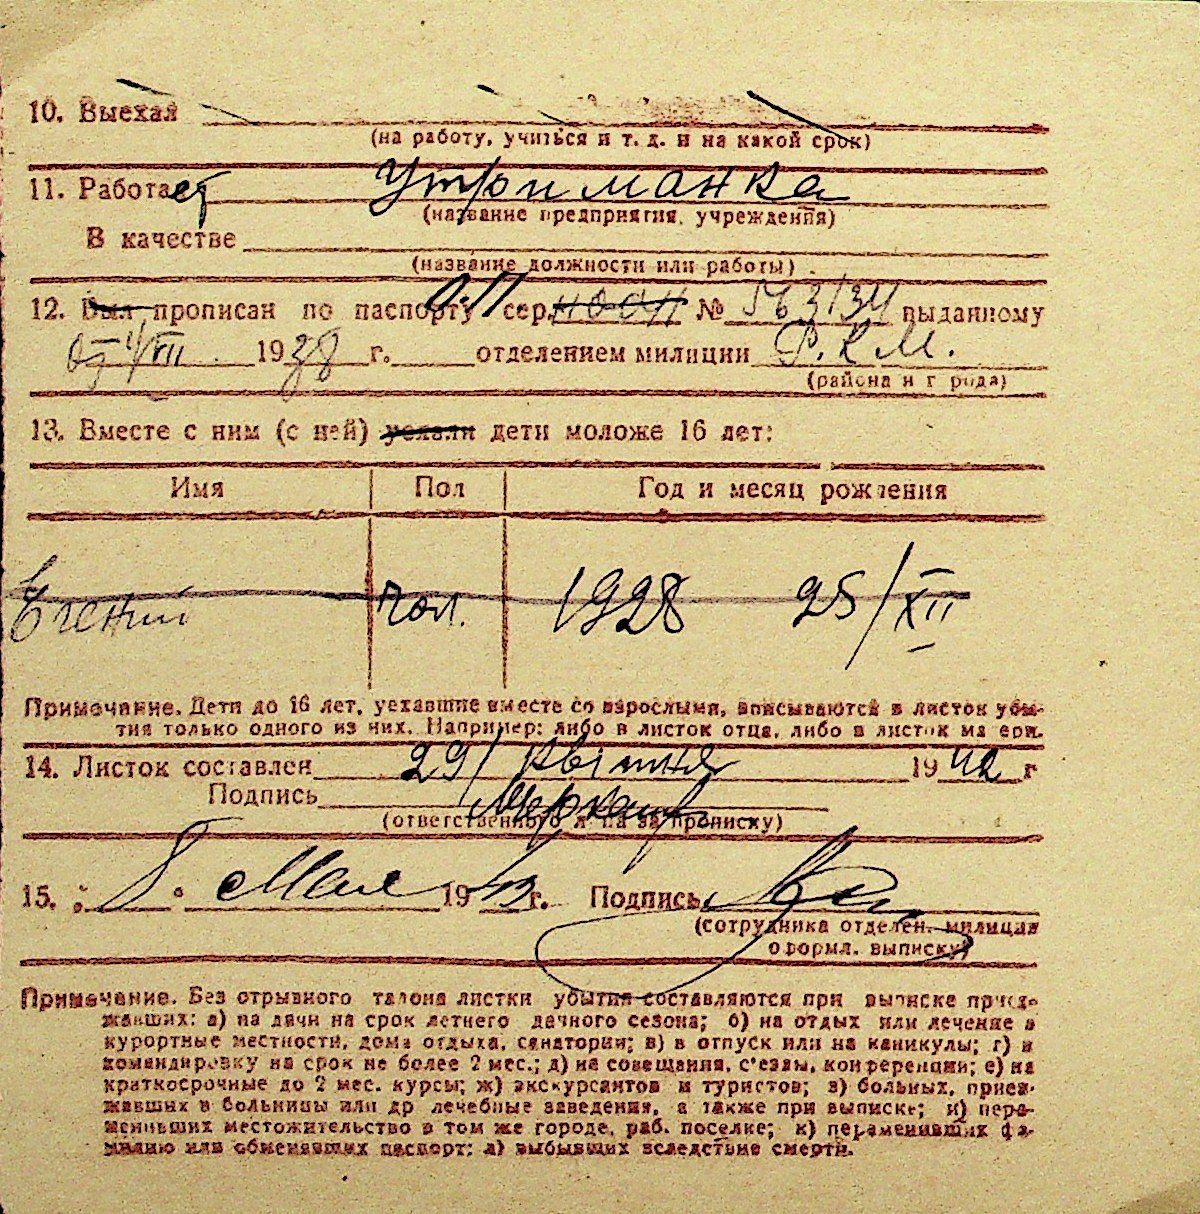 10. Выехал
(на работу, учиться и т. д. и на какой срок)
11. Работает утриманка
(название предприятия, учреждения)
В качестве
(название должности или работы)
12. Был прописан по паспорту сер. № 563134 выданному
от 4/VII 1938 г. отделением милиции Р.К.М.
(района и города)
13. Вместе с ним (с ней) уехали дети моложе 16 лет:
Имя Пол Год и месяц рождения
Евгений 1928 25/XII
Примечание. Дети до 16 лет, уехавшие вместе со взрослыми, вписываются в листок убы-
тия только одного из них. Например: либо в листок отца, либо в листок матери.
14. Листок составлен 29/ квітня 1942 г
Подпись
(ответственного лица за прописку)
15. „8“ Мая 1942 г. Подпись
(сотрудника отделен. милиции
оформл. выписку)
Примечание. Без отрывного талона листки убытия составляются при выписке приез-
жавших: а) на дачи на срок летнего дачного сезона; б) на отдых или лечение в
курортные местности, дома отдыха, санатории; в) в отпуск или на каникулы; г) в
командировку на срок не более 2 мес.; д) на совещания, с'езды, конференции; е) на
краткосрочные до 2 мес. курсы; ж) экскурсантов и туристов; з) больных, приез-
жавших в больницы или др лечебные заведения, а также при выписке; и) пере-
менивших местожительство в том же городе, раб. поселке; к) переменивших фа-
милию или обменявших паспорт; л) выбывших вследствие смерти.